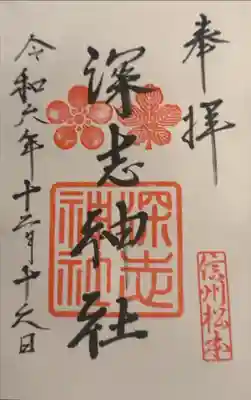 奉拝
深志神社
深志神社
信州松本
令和六年十二月十六日